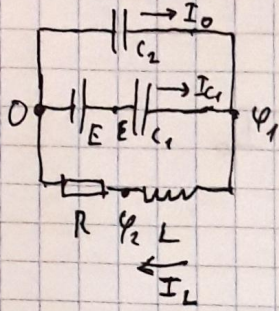 I₀
C₂
I_C₁
0 E ε C₁ φ₁
R φ₂ L
I_L